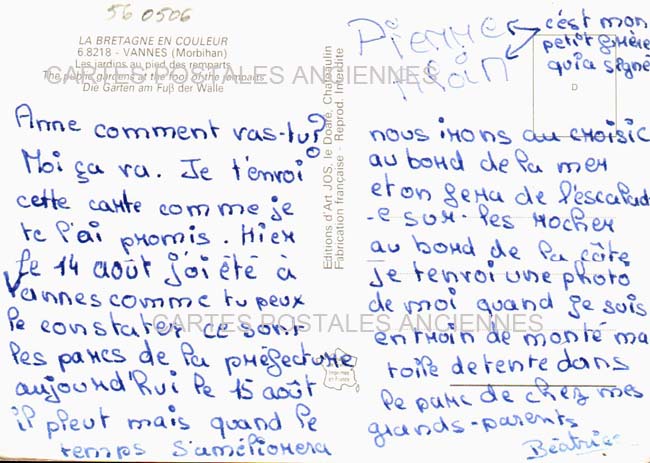 56 0506
LA BRETAGNE EN COULEUR
6.8218 - VANNES (Morbihan)
Les jardins au pied des remparts
The public gardens at the foot of the remparts
Die Gärten am Fuß der Walle
CARTES POSTALES ANCIENNES
Anne comment vas-tu?
Moi ça va. Je t'envoi
cette carte comme je
te l'ai promis. Hier
le 14 août j'ai été à
Vannes comme tu peux
le constater ce sont
les parcs de la préfecture
aujourd'hui le 15 août
il pleut mais quand le
temps s'améliorera
Editions d'Art JOS, le Doaré, Chateaulin
Fabrication française - Reprod. Interdite
Imprimé
en France
Pierre
Alain
c'est mon
petit frère
qui a signé
D
nous irons au croisic
au bord de la mer
et on fera de l'escalad
-e sur les rocher
au bord de la côte
je t'envoi une photo
de moi quand je suis
entroin de monté ma
toile de tente dans
le parc de chez mes
grands-parents
Béatrice
CARTES POSTALES ANCIENNES